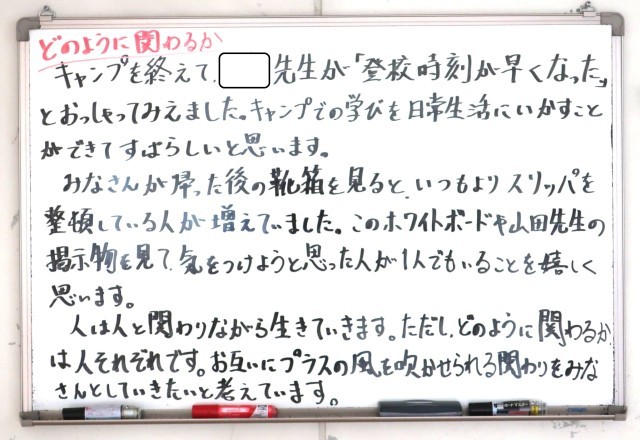 どのように関わるか
キャンプを終えて、先生が「登校時刻が早くなった」
とおっしゃってみえました。キャンプでの学びを日常生活にいかすこと
ができてすばらしいと思います。
みなさんが帰った後の靴箱を見ると、いつもよりスリッパを
整頓している人が増えていました。このホワイトボードや山田先生の
掲示物を見て、気をつけようと思った人が1人でもいることを嬉しく
思います。
人は人と関わりながら生きていきます。ただし、どのように関わるか
は人それぞれです。お互いにプラスの風を吹かせられる関わりをみな
さんとしていきたいと考えています。